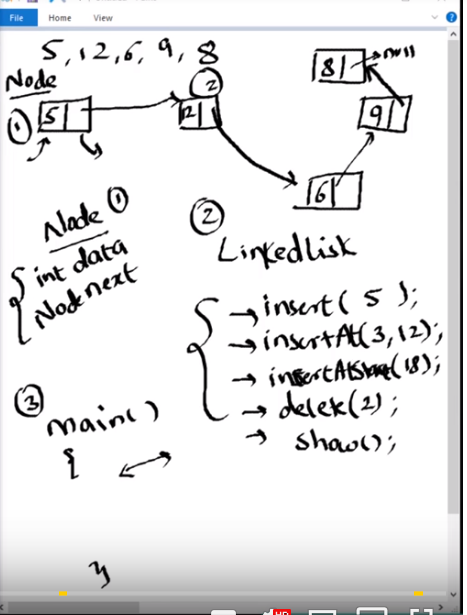 File Home View
5, 12, 6, 9, 8
Node
① 5
②
12
8 null
9
6
Node ①
{ int data
Node next
②
Linked List
{ → insert( 5 );
→ insertAt(3,12);
→ insertAtStart(18);
→ delete(2);
→ show();
③
main()
{
}
HD